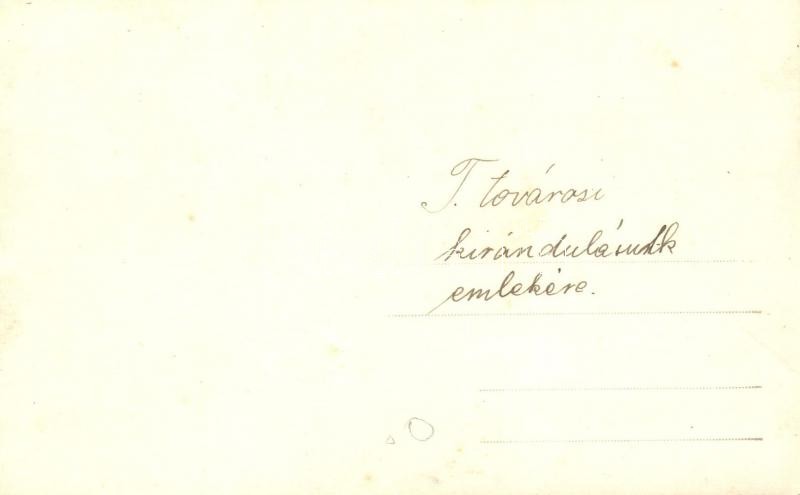 T. továrosi
kirándulásunk
emlekére.